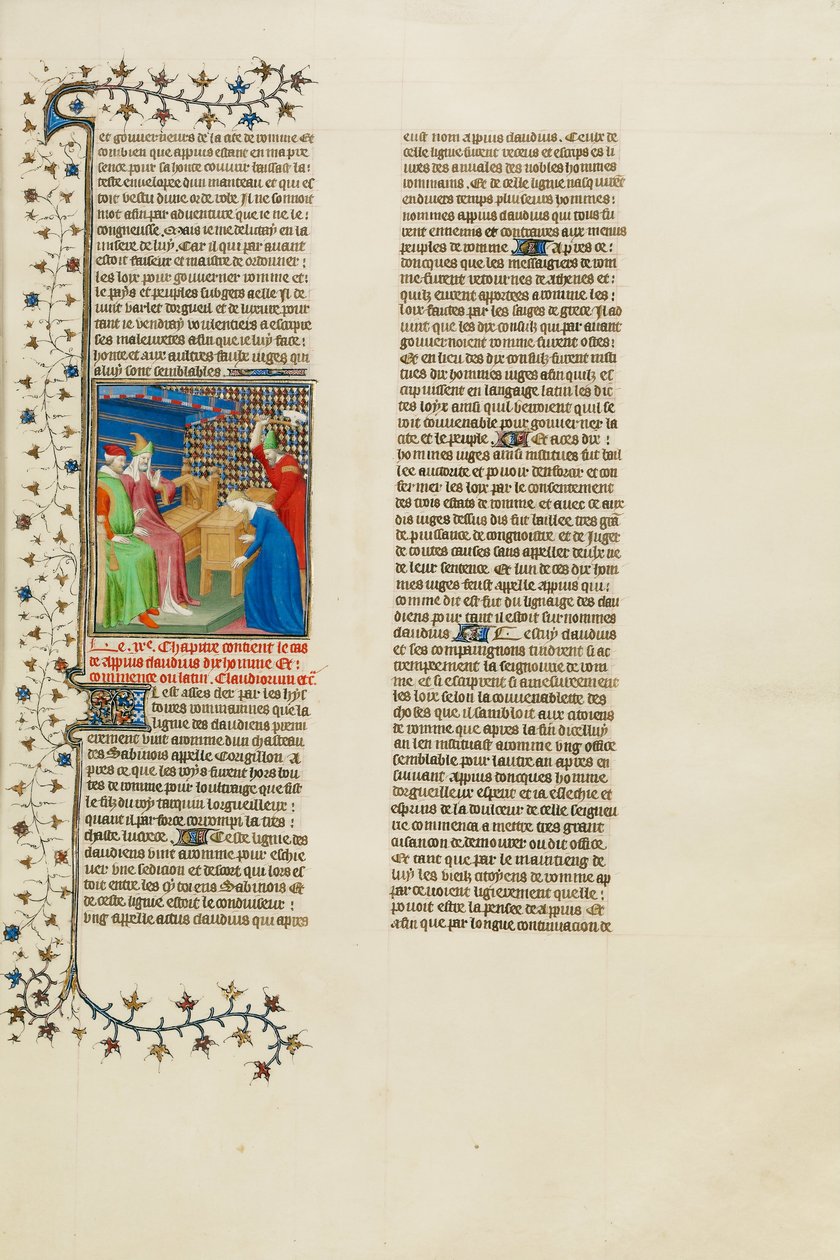 et gouverneurs de la cite de romme Et
combien que appius estant en ma pre
sence pour sa honte couvrir laissast la :
teste envelopee dun manteau et qui es
toit vestu dune orde robe Il ne sonnoit
mot afin par adventure que ie ne le :
congneusse. Mais ie me delictay en la
misere de luy. Car il qui par avant
estoit faiseur et maistre de ordonner :
les loix pour gouverner romme et :
le pays et peuples subgers a elle Il de
vint varlet dorgueil et de luxure pour
tant ie vendray voulentiers a escripre
ses maleurtes afin que ie luy face :
honte et aux aultres faulx iuges qui
a luy sont semblables .
Le .ixe. Chapitre contient le cas
de Appius claudius dix homme Et :
commence ou latin . Claudiorum etc.
Il est asses cler par les hys
toires rommaines que la
ligne des claudiens premi
erement vint a romme dun chasteau
des Sabinois appelle Corigillon A
pres ce que les roys furent hors bou
tes de romme pour loultraige que fist
le filz du roy tarquin lorgueilleux :
quant il par force corrompi la tres :
chaste lucrece . Ceste ligne des
claudiens vint a romme pour eschie
ver une sedicion et descort qui lors es
toit entre les cytoiens Sabinois Et
de ceste ligne estoit le conduiseur :
ung appelle actus claudius qui apres
eust nom appius claudius . Ceulx de
celle ligne furent receus et escrips es li
vres des annales des nobles hommes
rommains . Et de celle ligne nasquirent
en divers temps pluseurs hommes :
nommes appius claudius qui tous fu
rent ennemis et contraires aux menus
peuples de romme . Apres ce :
doncques que les messaigiers de rom
me furent retournes de athenes et :
quilz eurent apportees a romme les :
loix faites par les saiges de grece Il ad
vint que les dix consulz qui par avant
gouvernoient romme furent ostes :
Et en lieu des dix consulz furent insti
tues dix hommes iuges afin quilz es
cripvissent en langaige latin les dic
tes loyx ainsi quil verroient quil se
roit couvenable pour gouverner la
cite et le peuple . Et a ces dix :
hommes iuges ainsi institues fut bail
lee auctorite et pouoir denforcer et con
fermer les loix par le consentement
des trois estats de romme et avec ce aux
dis iuges dessus dis fut baillee tres grant
de puissance de congnoistre et de Juger
de toutes causes sans appeller deulx ne
de leur sentence . Et lun de ces dix hom
mes iuges feust appelle Appius qui :
comme dit est fut du lignaige des clau
diens pour tant il estoit surnommes
claudius . Cestuy claudius
et ses compaignons tindrent si at
trempeement la seignourie de rom
me et si escriprent si amesureement
les loix selon la couvenablete des
choses que il sambloit aux citoiens
de romme que apres la fin dicelluy
an len instituast a romme ung office
semblable pour lautre an apres en
suivant Appius doncques homme
dorgueilleux esperit et ia eslechie et
esprins de la doulceur de celle seigneu
rie commenca a mettre tres grant
cusancon de demourer ou dit office
Et tant que par le maintieng de
luy les vielz citoyens de romme ap
parcevoient ligierement quelle :
pouoit estre la pensee de Appius Et
afin que par longue continuacion de